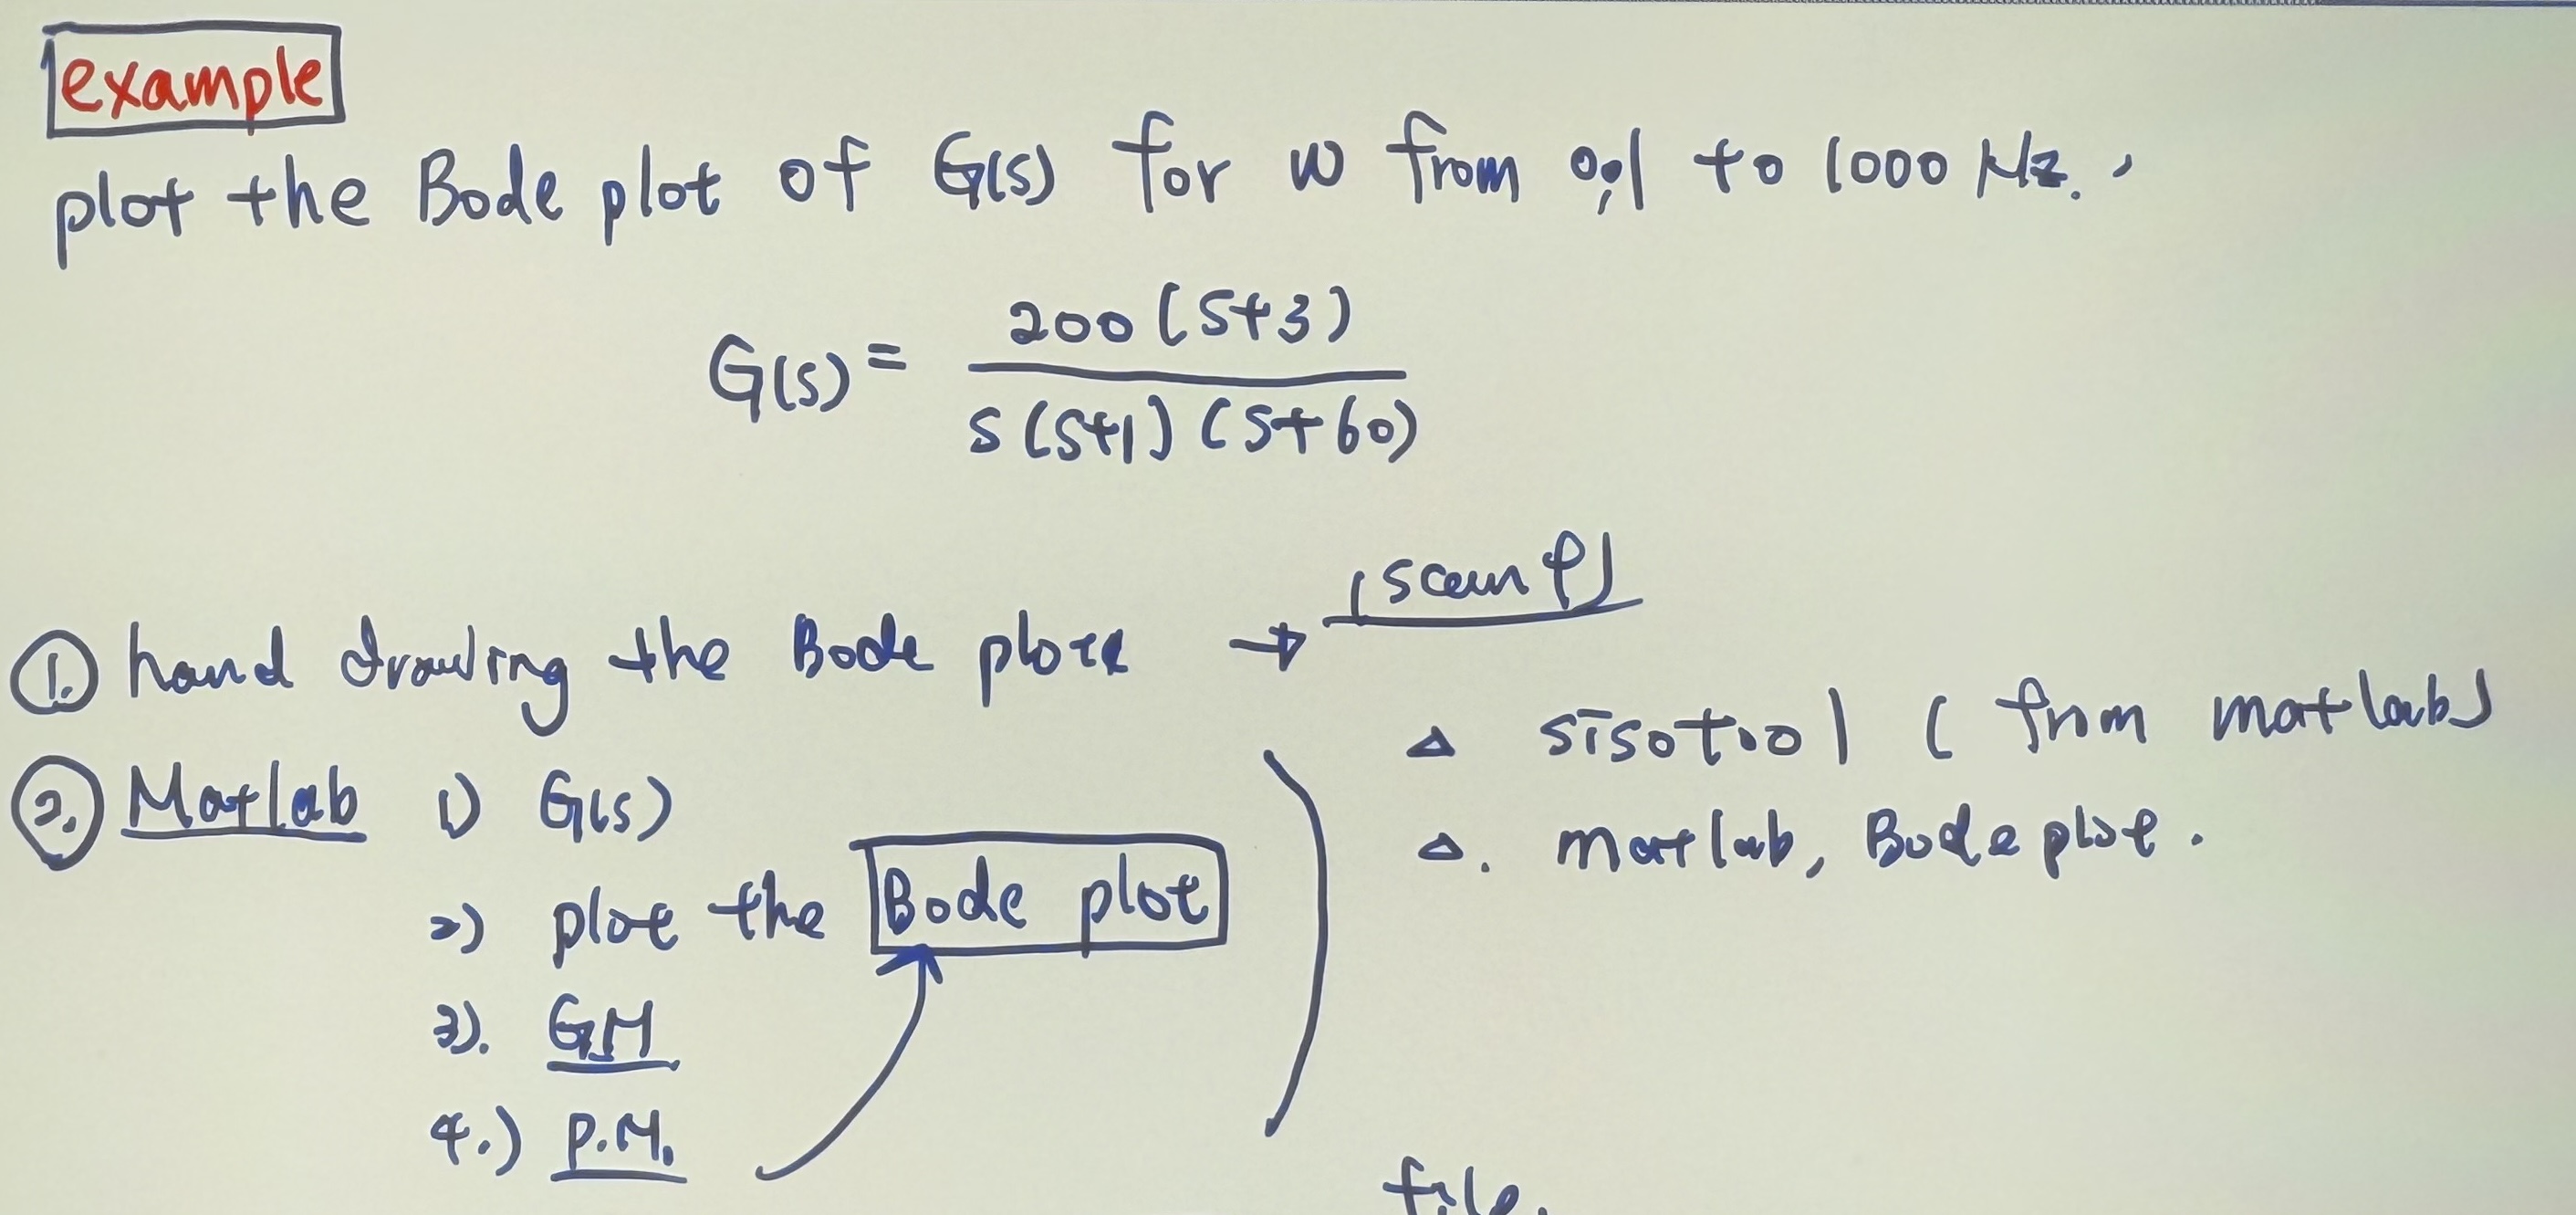 example
plot the Bode plot of G(s) for w from 0.1 to 1000 Hz.
G(s) = 200(s+3) / s(s+1)(s+60)
1. hand drawing the Bode plot →
△ sisotool (from matlab)
2. Matlab 1) G(s)
△. matlab, Bode plot.
2) plot the Bode plot
3). GM
4.) P.M.
file.